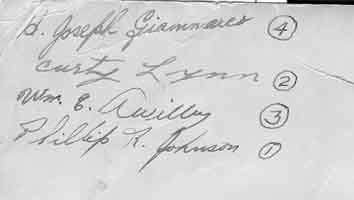 H. Joseph Giammares ④
Curty Lynn ②
Wm. E. Awilby ③
Phillip R. Johnson ①